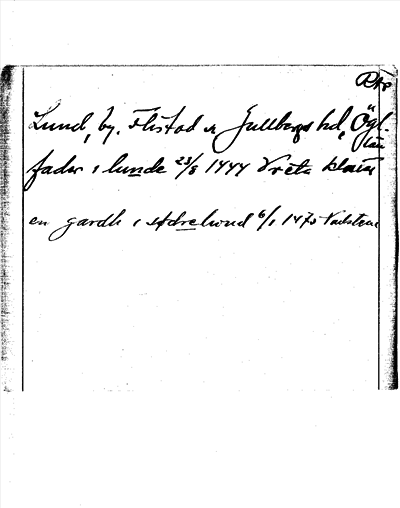 RAP
Lund, by, Flistad sn Gullbergs hd, Ögl.
län
fadur i lunde 23/8 1444 Vreta klost
en gardh i södrelund 6/1 1475 Vadstena